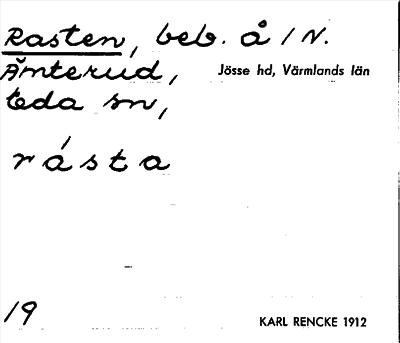 Rasten, beb. å / N.
Ämterud, Jösse hd, Värmlands län
Eda sn,
råsta
19 KARL RENCKE 1912